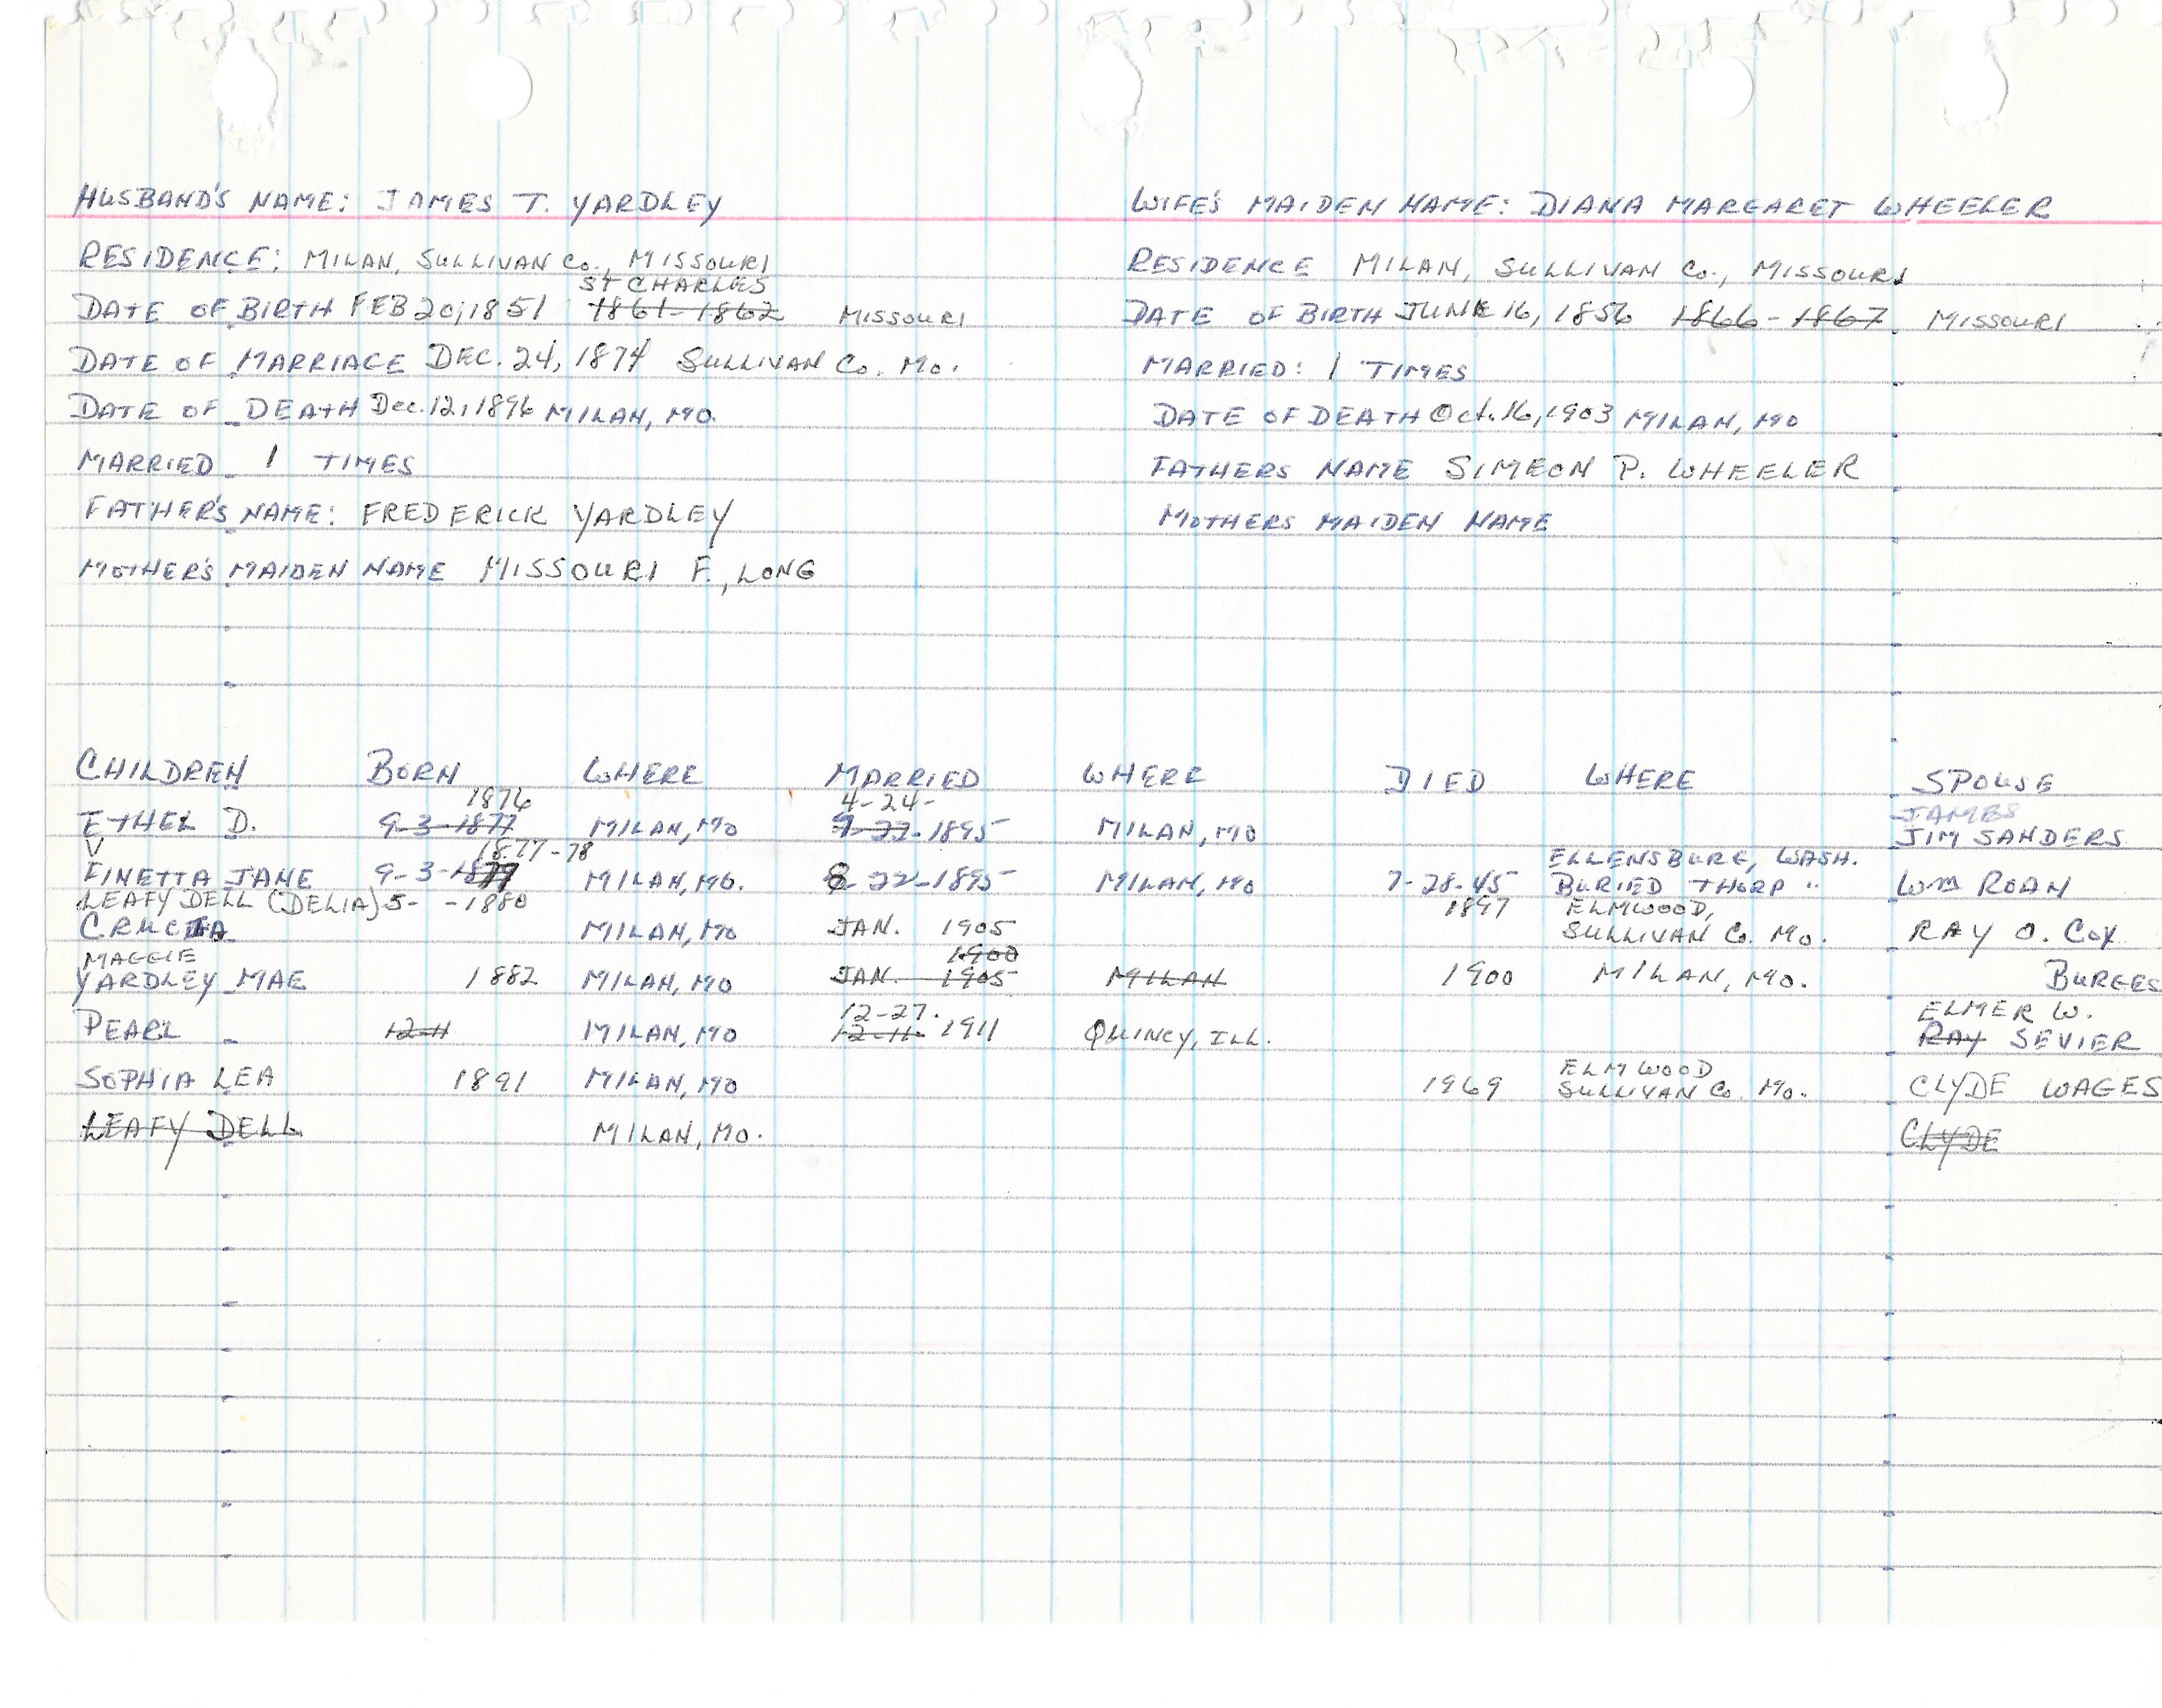 HUSBAND'S NAME: JAMES T. YARDLEY
WIFE'S MAIDEN NAME: DIANA MARGARET WHEELER
RESIDENCE: MILAN, SULLIVAN Co., MISSOURI
RESIDENCE MILAN, SULLIVAN Co., MISSOURI
ST CHARLES
DATE OF BIRTH FEB 20, 1851 1861-1862 MISSOURI
DATE OF BIRTH JUNE 16, 1856 1866-1867 MISSOURI
DATE OF MARRIAGE DEC. 24, 1874 SULLIVAN Co. Mo.
MARRIED: 1 TIMES
DATE OF DEATH Dec. 12, 1896 MILAN, MO.
DATE OF DEATH Oct. 16, 1903 MILAN, MO
MARRIED 1 TIMES
FATHERS NAME SIMEON P. WHEELER
FATHER'S NAME: FREDERICK YARDLEY
MOTHERS MAIDEN NAME
MOTHER'S MAIDEN NAME MISSOURI F., LONG
CHILDREN BORN WHERE MARRIED WHERE DIED WHERE SPOUSE
1876 4-24- JAMES
ETHEL D. 9-3-1877 MILAN, MO 9-22-1895 MILAN, MO JIM SANDERS
V 1877-78 ELLENSBURG, WASH.
FINETTA JANE 9-3-1877 MILAN, MO. 8-22-1895 MILAN, MO 7-28-45 BURIED THORP " WM ROAN
LEAFY DELL (DELIA) 5- -1880 1897 ELMWOOD,
MILAN, MO JAN. 1905 SULLIVAN Co. Mo. RAY O. COX
MAGGIE 1900
YARDLEY MAE 1882 MILAN, MO JAN. 1905 MILAN 1900 MILAN, MO. BURGES
12-27. ELMER W.
PEARL 12-11 MILAN, MO 12-11- 1911 QUINCY, ILL. RAY SEVIER
ELMWOOD
SOPHIA LEA 1891 MILAN, MO 1969 SULLIVAN Co. Mo. CLYDE WAGES
LEAFY DELL MILAN, MO. CLYDE